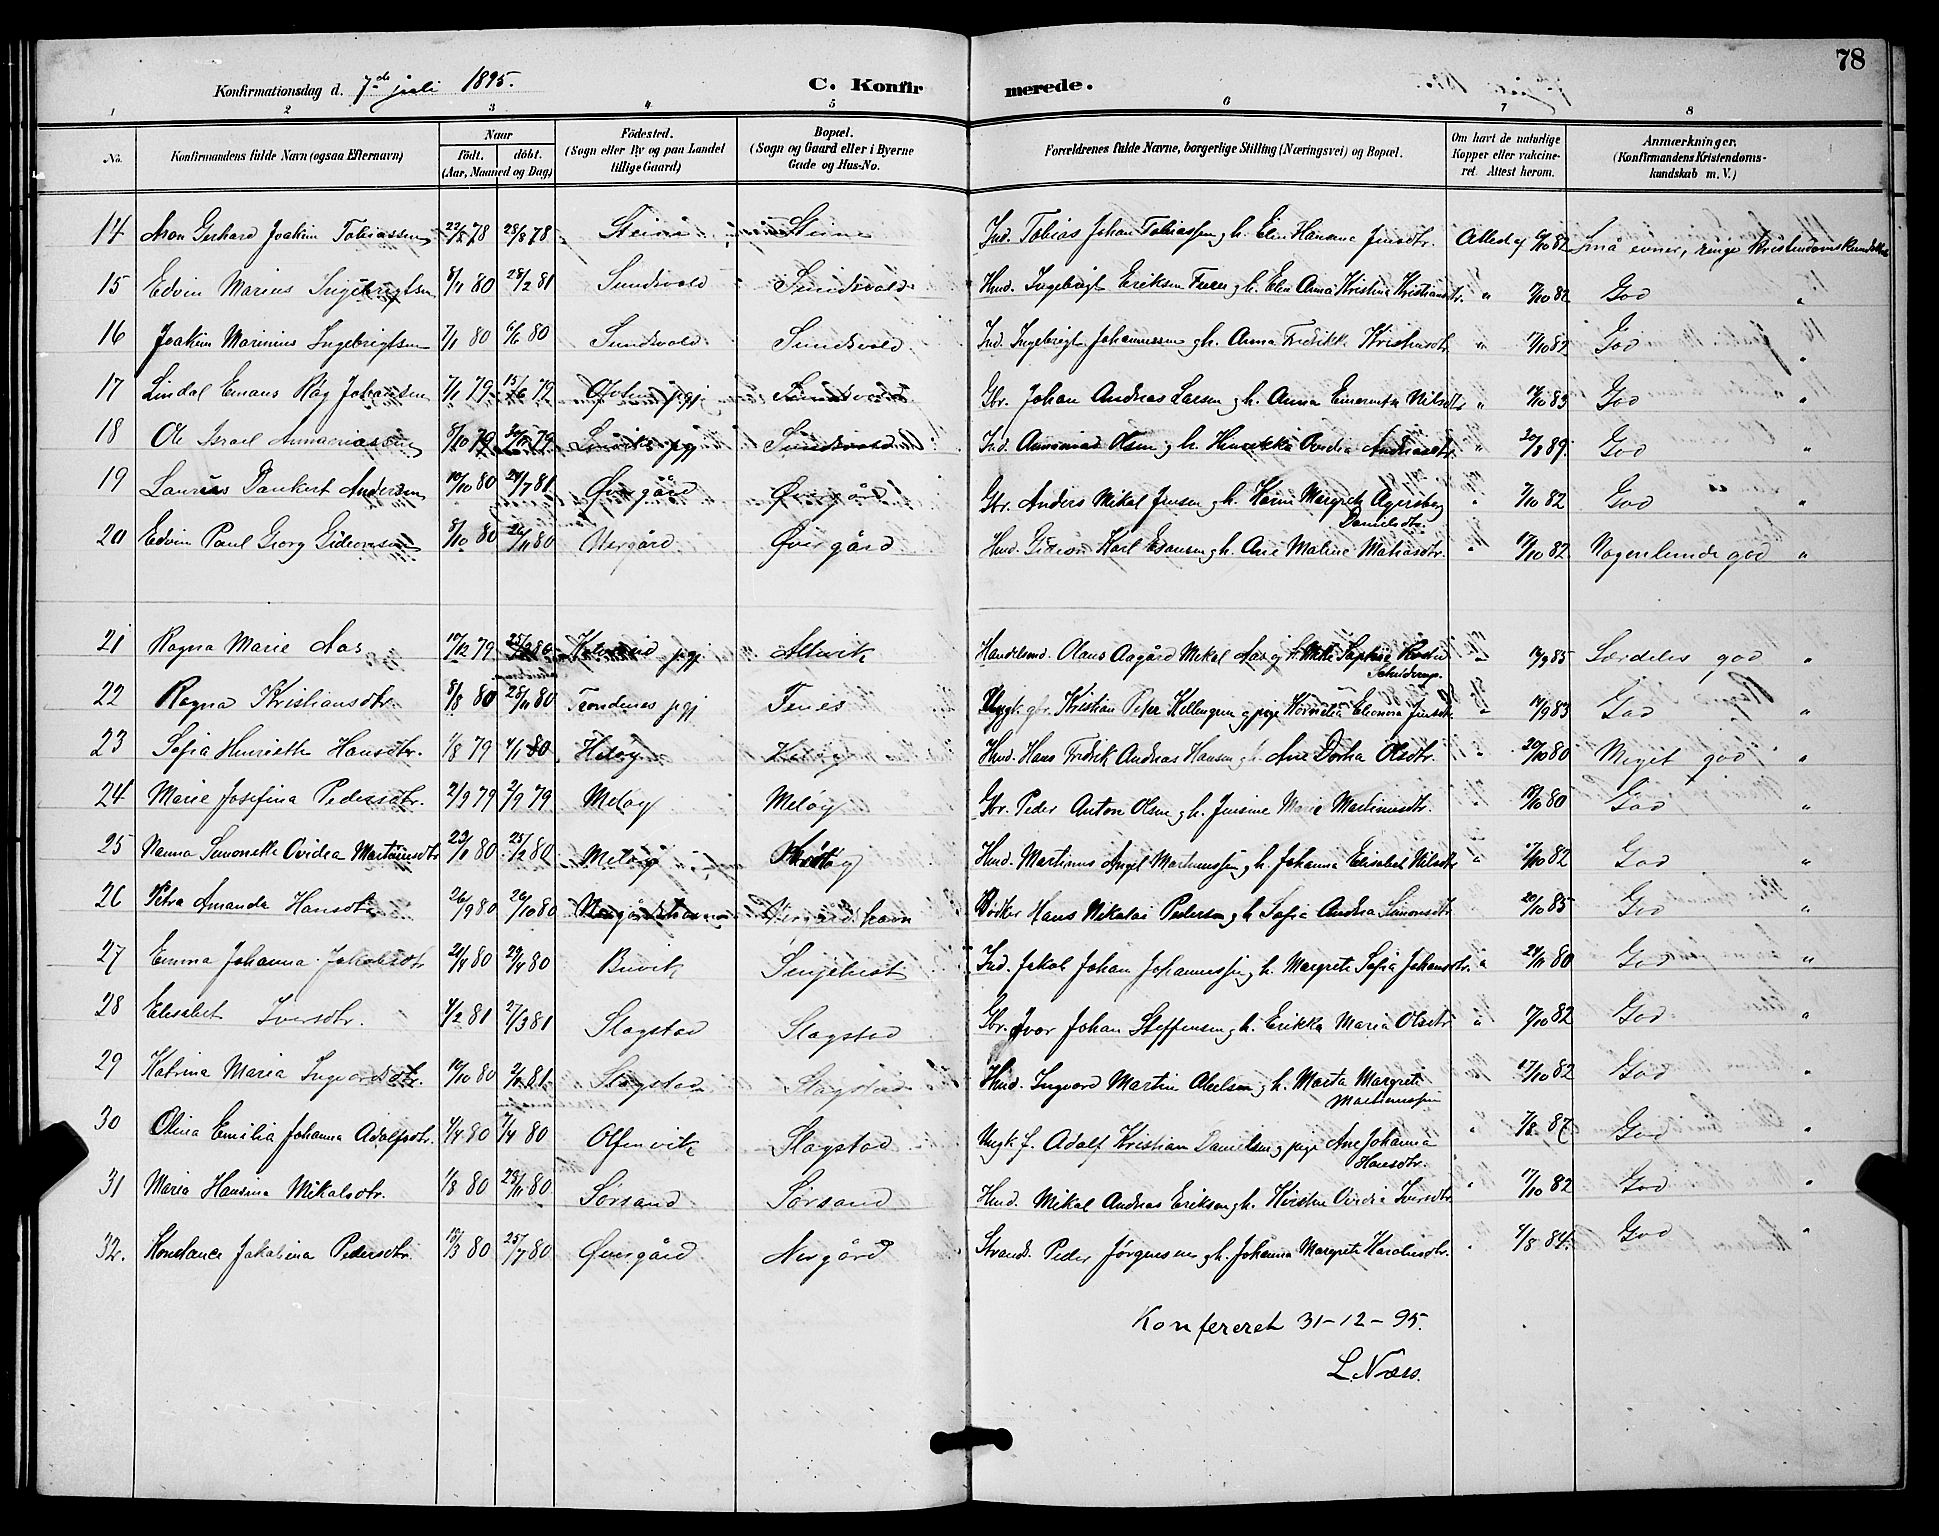 78
Konfirmationsdag d. 7de juli 1895.
C. Konfirmerede.
1 2 3 4 5 6 7 8
No.
Konfirmandens fulde Navn (ogsaa Efternavn)
Naar
födt. döbt.
(Aar, Maaned og Dag)
Födested.
(Sogn eller By og paa Landet
tillige Gaard)
Bopæl.
(Sogn og Gaard eller i Byerne
Gade og Hus-No.
Forældrenes fulde Navne, borgerlige Stilling (Næringsvei) og Bopæl.
Om havt de naturlige
Kopper eller vakcine-
ret. Attest herom.
Anmærkninger.
(Konfirmandens Kristendoms-
kundskab m. V.)
14 Aron Gerhard Joakim Tobiassen 22/2 78 28/8 78 Steine Steine Ind. Tobias Johan Tobiassen g h. Elen Hansine Jensdtr. Attest af 7/10 82 Små evner, ringe Kristendomskundskab
15 Edvin Marius Ingebrigtsen 8/1 80 28/2 81 Sundsvold Sundsvold Hmd. Ingebrigt Eriksen g h. Elen Anna Kristine Kristiansdtr. " 7/10 82 God "
16 Joakim Marinius Ingebrigtsen 7/1 80 6/6 80 Sundsvold Sundsvold Ind. Ingebrigt Johannessen g h. Anna Fredrikke Kristiansdtr. " 17/10 82 God "
17 Lindal Emans Råg Johansen 7/1 79 15/6 79 pgj Sundsvold Gbr. Johan Andreas Larsen g h. Anna Nilsdtr " 17/10 83 God "
18 Ole Israel Annaniassen 8/10 79 79 Lenvik pgj Sundsvold Ind. Annanias Olsen g h. Henrikka Ovidia Andreasdtr. " 20/8 89. God "
19 Laurits Dankert Andersen 10/10 80 24/7 81 Øvergård Øvergård Gbr. Anders Mikal Jensen g h. Hanna Margrete Agersborg Danielsdtr. " 7/10 82 God "
20 Edvin Paul Georg Gideonsen 8/10 80 26/11 80 Nergård Øvergård Hmd. Gideon Karl Esaisen g h. Ane Maline Matiasdtr. " 17/10 82 Nogenlunde god "
21 Ragna Marie Aas 10/12 79 25/ 80 pgj Altevik Handelsmd. Olaus Aagård Mikal Aas g h. Mette Sophie " 17/9 85 Særdeles god "
22 Ragna Kristiansdtr. 8/8 80 28/11 80 Trondenes pgj Fenes Ungk. gbr. Kristian Peter Kellengren g pige Kornelia Eleonora Jensdtr " 14/9 83 God "
23 Sofia Henrietta Hansdtr. 1/8 79 4/1 80 Hmd. Hans Fredrik Andreas Hansen g h. Ane Dortea Olsdtr. " 20/10 80 Meget god "
24 Marie Josefina Pedersdtr. 2/3 79 2/9 79 Meløy Meløy Gbr. Peder Anton Olsen g h. Jensine Maria Martinusdtr. 18/10 80 God "
25 Nanna Simonette Ovidia Martinusdtr 23/1 80 25/2 80 Meløy Hmd. Martinus Angel Martinussen g h. Johanna Elisabet Nilsdtr " 17/10 82 God "
26 Petra Amanda Hansdtr 26/9 80 26/10 80 Nergårdshavn Nergårdshavn Bødker Hans Nikolai Pedersen g h. Sofia Andrea Simonsdtr 20/10 85 God "
27 Emma Johanna Jakobsdtr 21/4 80 29/4 80 Buvik Senjehest Ind. Jakob Johan Johannessen g h. Margrete Sofia Johansdtr. " 24/11 80 God "
28 Elisabet Iversdtr. 4/2 81 27/3 81 Slagstad Slagstad Gbr. Ivar Johan Steffensen g h. Erikka Maria Olsdtr " 17/10 82 God "
29 Katrina Maria Ingvardsdtr. 10/10 80 2/ 81 Slagstad Slagstad Hmd. Ingvard Martin Abelsen g h. Marta Margrete Martinussen 17/10 82 God "
30 Olina Emilia Johanna Adolfsdtr. 4/4 80 7/4 80 Olfenvik Slagstad Ungk. f. Adolf Kristian Danielsen g pige Ane Johanna Hansdtr. " 7/8 87 God "
31 Maria Hansina Mikalsdtr. 1/8 80 28/11 80 Sørsand Sørsand Hmd. Mikal Andreas Eriksen g h. Kirstin Ovidia Iversdtr. " 17/10 82 God "
32. Konstance Jakobina Pedersdtr. 13/3 80 25/7 80 Øvergård Nergård Strands. Peder Jørgensen g h. Johanna Margrete Karolusdtr. " 4/8 84. God "
Konfereret 31-12-95.
L. Næss.